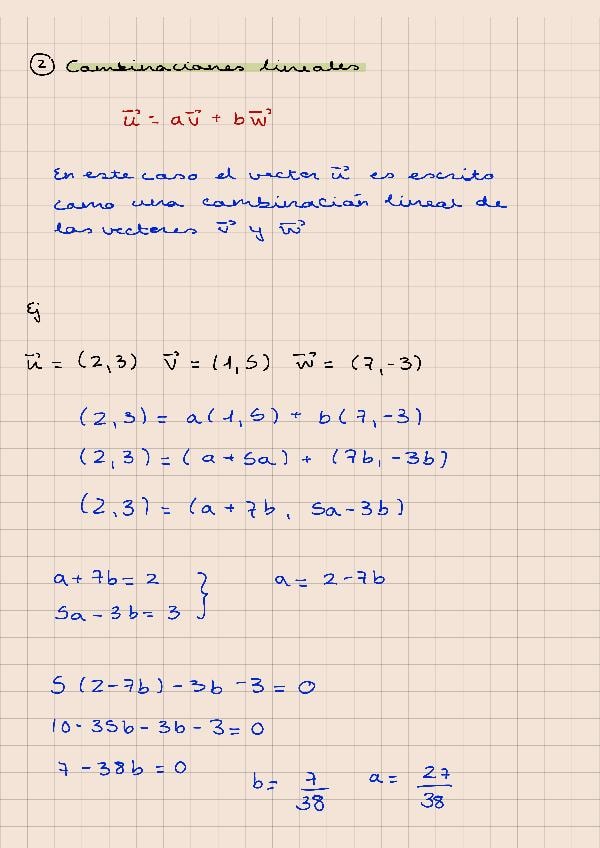 ② Combinaciones lineales
u⃗ = av⃗ + bw⃗
En este caso el vector u⃗ es escrito
como una combinación lineal de
los vectores v⃗ y w⃗
Ej
u⃗ = (2,3) v⃗ = (1,5) w⃗ = (7,-3)
(2,3) = a(1,5) + b(7,-3)
(2,3) = (a+5a) + (7b,-3b)
(2,3) = (a+7b, 5a-3b)
a+7b=2 } a= 2-7b
5a-3b=3
5(2-7b)-3b-3=0
10-35b-3b-3=0
7-38b=0
b= 7/38 a= 27/38